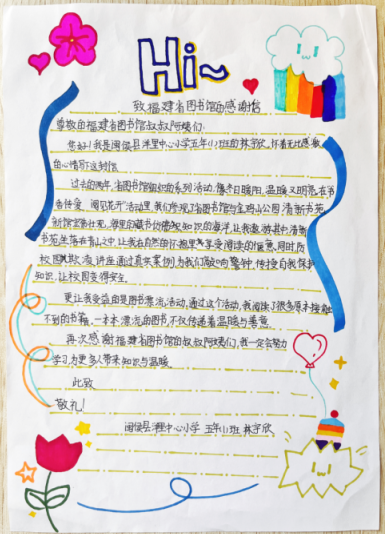 Hi~
致福建省图书馆的感谢信
尊敬的福建省图书馆叔叔阿姨们:
您好!我是闽侯县洋里中心小学五年(1)班的林宇欣,怀着无比感激
的心情写下这封信
过去的两年,省图书馆组织的系列活动,像冬日暖阳,温暖又明亮。在书
香传爱,阅见花开"活动里,我们参观了省图书馆与金鸡山公园清新书苑
新馆宏伟壮观,馆里的藏书仿佛知识的海洋,让我遨游其中,清新
书苑坐落在青山之中,让我在自然的怀抱里享受阅读的惬意,同时防
校园欺凌讲座通过真实案例,为我们敲响警钟,传授自我保护
知识,让校园变得安全。
更让我受益的是图书漂流活动,通过这个活动,我阅读了很多原本接触
不到的书籍,一本本漂流的图书,不仅传递着温暖与善意
再次感谢福建省图书馆的叔叔阿姨们,我一定会努力
学习,为更多人带来知识与温暖。
此致
敬礼!
闽侯县洋里中心小学 五年(1)班 林宇欣